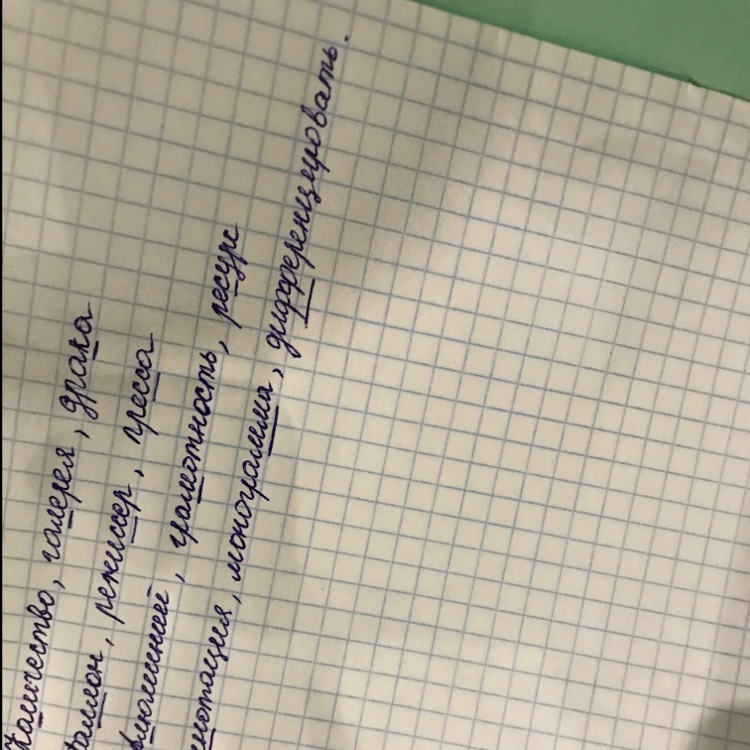 Количество, галерея, драка
режиссер, пресса
алюминий, грамотность, ресурс
монограмма, дифференцировать.